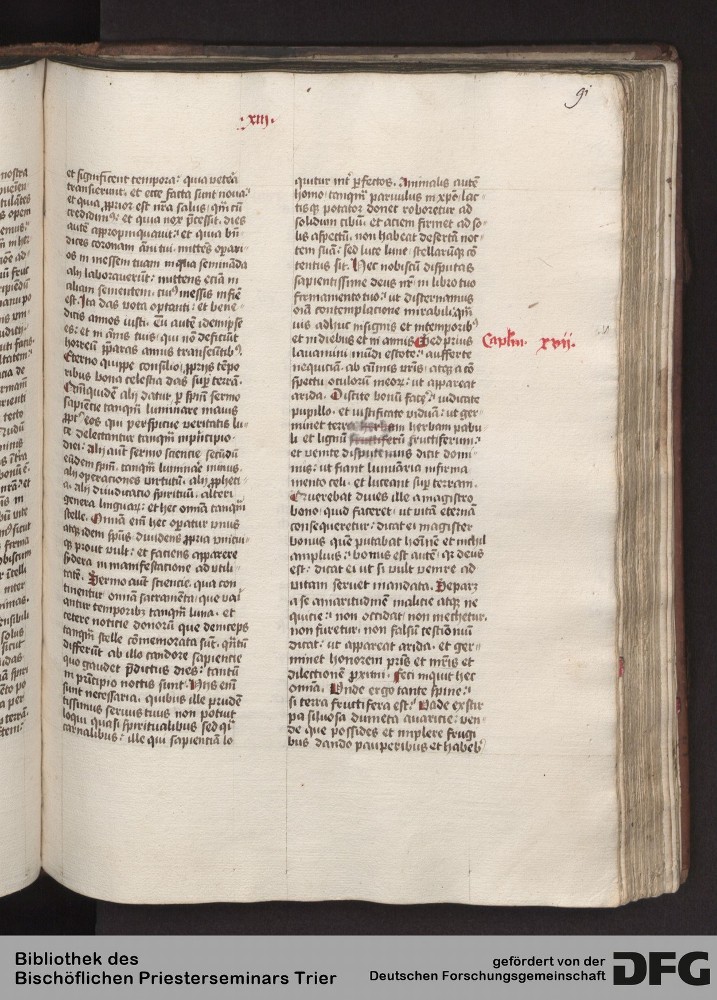 .xiii.
91
et significent tempora: quia vetera
transierunt, et ecce facta sunt noua:
et quia ꝓprior est nr̄a salus, qm̄ cū
credidimꝰ: et quia nox p̄cessit, dies
autē appropinquauit: et quia bn̄
dices coronam āni tui, mittēs oꝑari
os in messem tuam in qua semināda
alij laborauerūt: mittens etiā in
aliam sementem, cuiꝰ messis in fie
est. Ita das vota optanti: et bene
dicis annos iusti. Tu autē idem ipse
es: et in annis tuis, qui nō deficiūt
horreū p̄paras annis transeūtibꝰ.
Eterno quippe consilio, ꝓprijs tēpo
ribus bona celestia das suꝑ terrā.
Qm̄ quidem alij datur ꝑ sp̄m sermo
sapiētie tanqm̄ luminare maius
ꝓpt̓ eos qui perspicue veritatis lu
ce delectantur tanqm̄ in p̓ncipio
diei: alij aūt sermo sciētie secūdū
eūdem sp̄m, tanqm̄ luminare minus.
alij operationes virtutū. alij ꝓpheti
a. alij diiudicatio sp̄rituū. alteri
genera linguaꝝ: et hec om̄ia tanqm̄
stelle. Om̄ia em̄ hec oꝑatur vnus
atqꝫ idem sp̄us: diuidens ꝓpria vnicui
qꝫ prout vult: et faciens apparere
sydera in manifestatione ad vtili
tatē. Sermo aūt sciencie, qua con
tinentur om̄ia sacramēta: que vari
antur temporibꝫ tanqm̄ luna. et
cetere noticie donorū que deinceps
tanqm̄ stelle cōmemorata sūt. qn̄tū
differūt ab illo candore sapientie
quo gaudet p̄dictus dies: tantū
in p̓ncipio noctis sunt. Hijs em̄
sunt necessaria, quibus ille prudē
tissimus seruus tuus non potuit
loqui quasi sp̄ritualibus sed qͣsi
carnalibus: ille qui sapientiā lo
quitur int̓ ꝑfectos. Animalis autē
homo tanqm̄ paruulus in xp̄o lac
tisqꝫ potator donec roboretur ad
solidum cibū. et aciem firmet ad so
lis aspectū. non habeat desertā noc
tem suā: sed luce lune stellarūqꝫ cō
tentus sit. Hec nobiscū disputas
sapientissime deus nr̄ in libro tuo
firmamento tuo: ut discernamus
oīa contemplacione mirabili: qm̄
uis adhuc in signis et in temporibꝰ
et in diebus et in annis. Sed prius
lauamini mūdi estote: aufferte
nequiciā ab aīmis vr̄is atqꝫ a cō
spectu oculorū meoꝝ: ut appareat
arida. Discite bonū facꝰe: iudicate
pupillo. et iustificate viduā: ut ger
minet terra herbam pabu
li et lignū fructiferum:
et venite disputemus dicit domi
nus: ut fiant luminaria in firma
mento celi. et luceant suꝑ terram.
Querebat diues ille a magistro
bono, quid faceret: ut vitā eternā
consequeretur: dicat ei magister
bonus quē putabat hoīnē et nichil
amplius: bonus est autē qꝫ deus
est: dicat ei ut si vult venire ad
vitam seruet mandata. Separꝫ
a se amaritudinē malicie atqꝫ ne
quicie: non occidat non mechetur.
non furetur. non falsū testīoniū
dicat: ut appareat arida. et ger
minet honorem pr̄is et mr̄is et
dilectionem ꝓximi. Feci inquit hec
om̄ia. Vnde ergo tante spine:
si terra fructifera est: Vade extir
pa siluosa dumeta auaricie: ven
de que possides et implere frugi
bus dando pauperibus et habebꝭ
Caplm̄. xvii.
Bibliothek des
Bischöflichen Priesterseminars Trier
gefördert von der
Deutschen Forschungsgemeinschaft
DFG